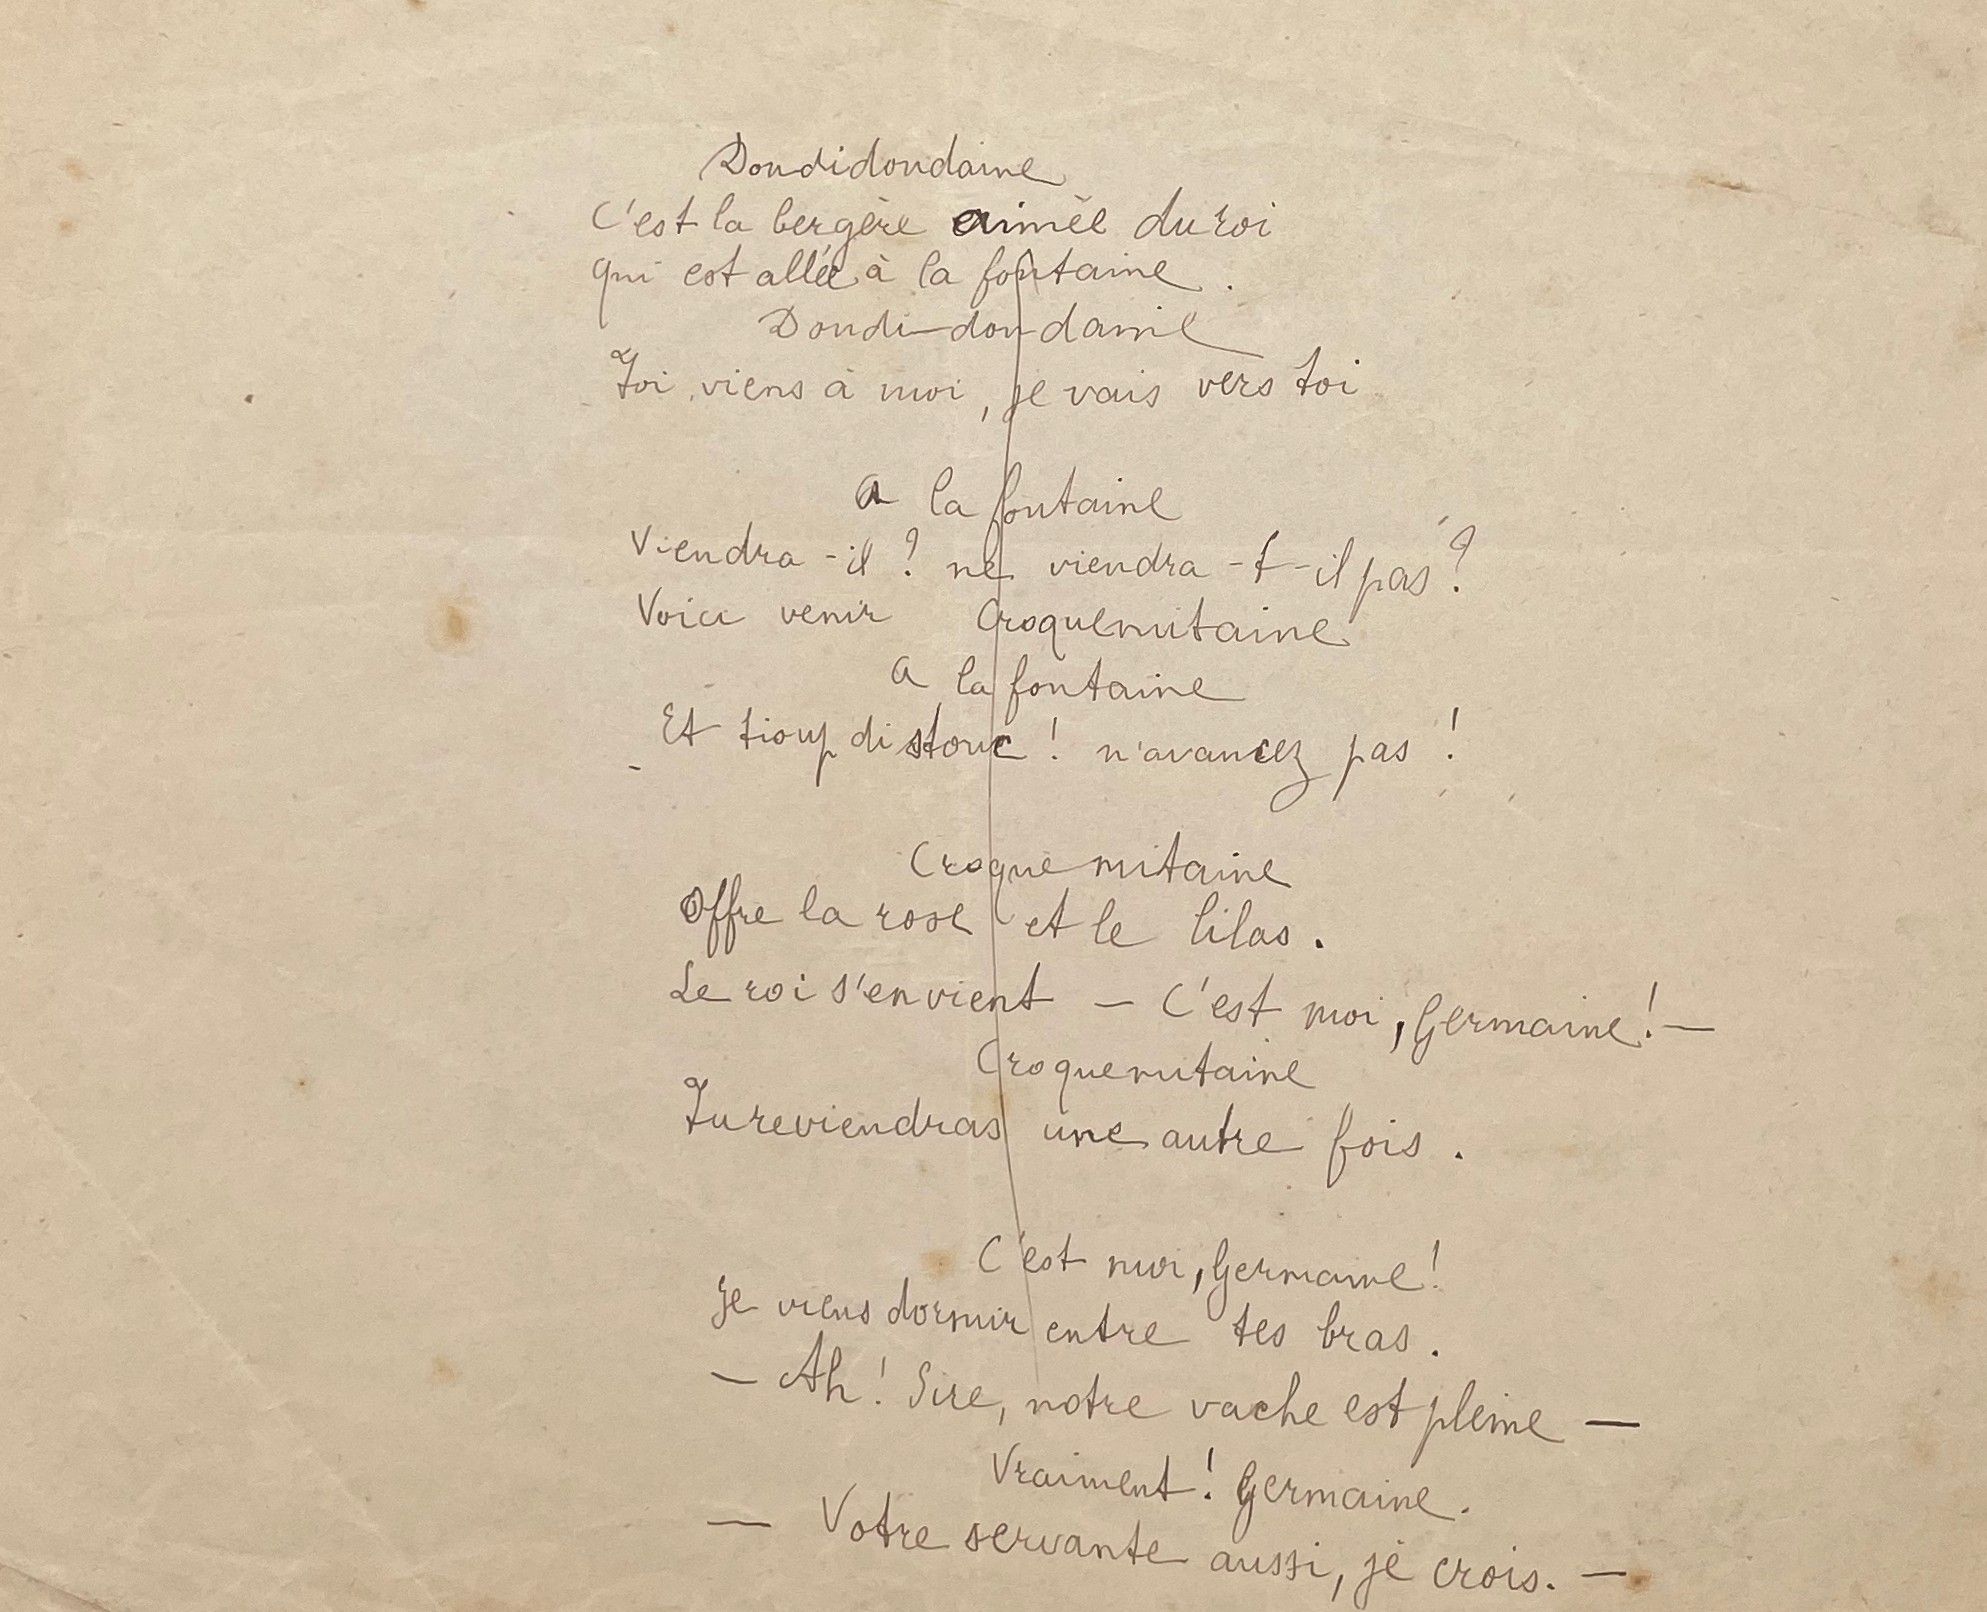 Dondidondaine
C'est la bergère aimée du roi
qui est allée à la fontaine.
Dondi-dondaine
Toi, viens à moi, je vais vers toi
A la fontaine
Viendra-il? ne viendra-t-il pas?
Voici venir Croquemitaine
A la fontaine
Et tioup distouc! n'avancez pas!
Croquemitaine
Offre la rose et le lilas.
Le roi s'en vient — C'est moi, Germaine! —
Croquemitaine
Tu reviendras une autre fois.
C'est moi, Germaine!
Je viens dormir entre tes bras.
— Ah! Sire, notre vache est pleine —
Vraiment! Germaine.
— Votre servante aussi, je crois. —